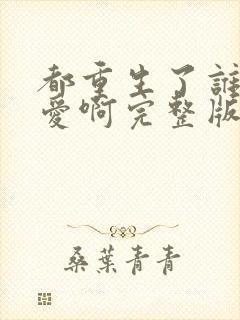 都重生了誰
愛啊完整版
桑葉青青